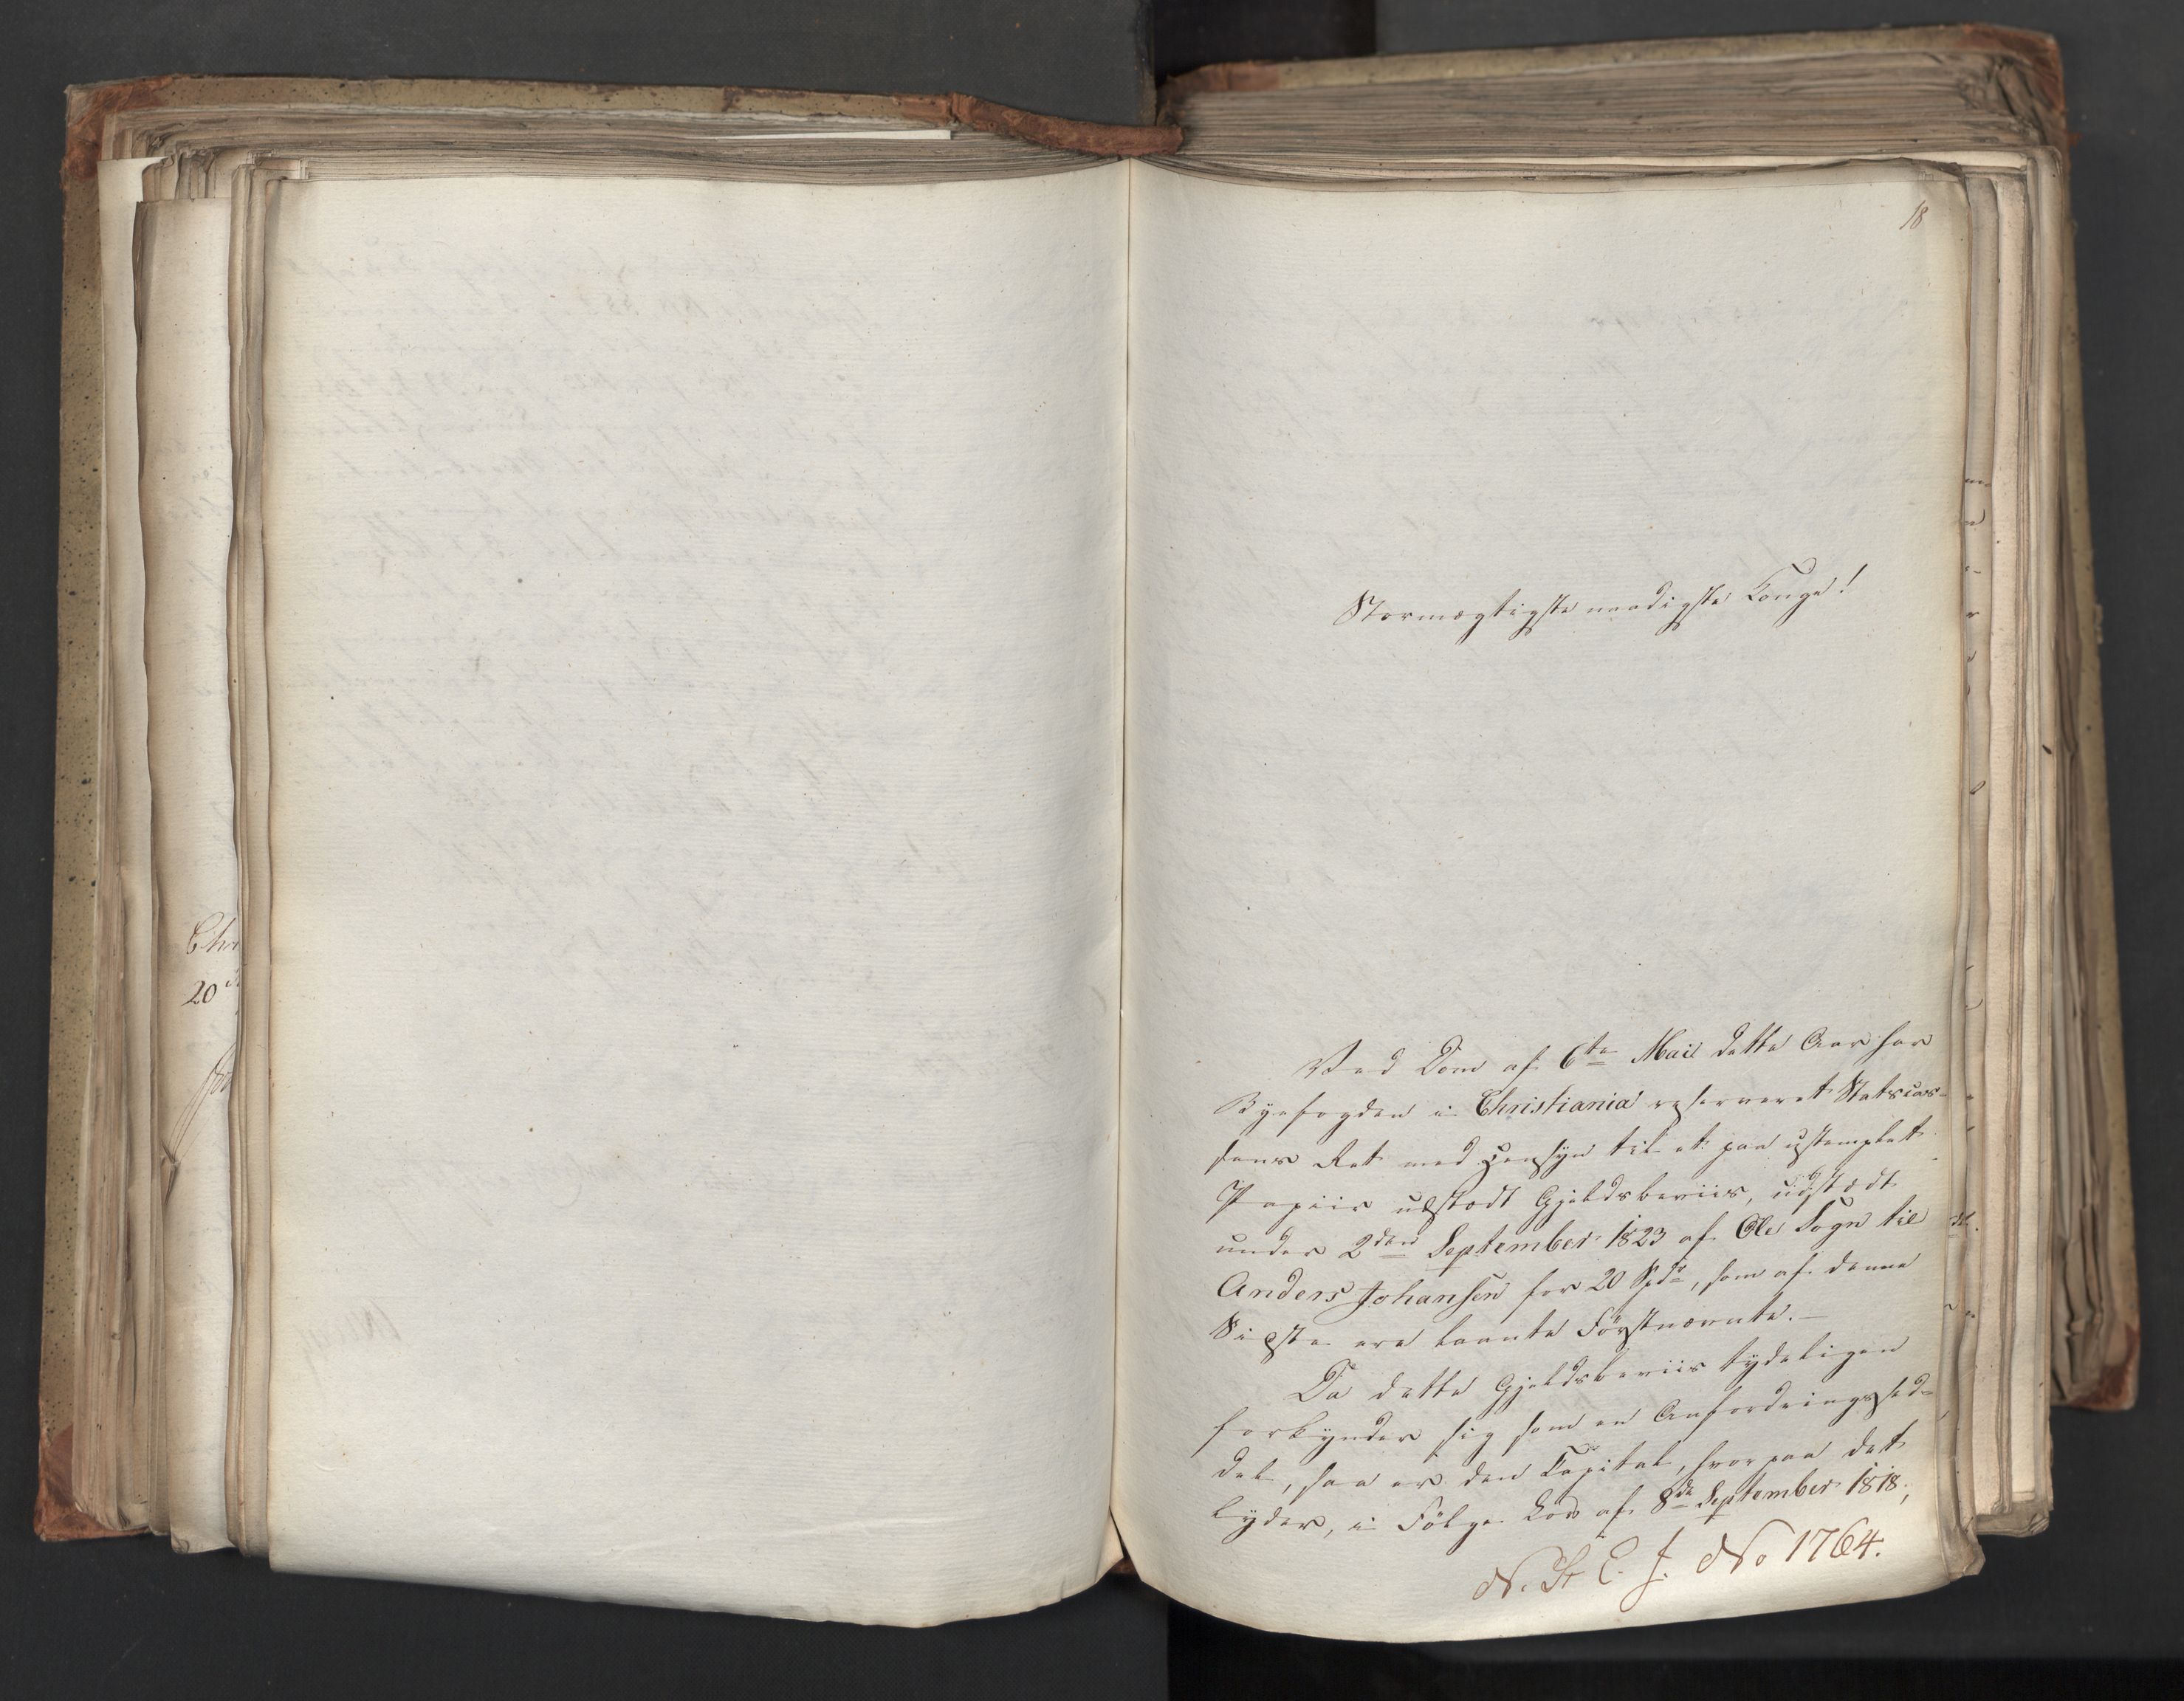 18
Stormægtigste naadigste Konge!
Ved Dom af 6te Mai dette Aar har
Byefogden i Christiania reserveret Statscas-
sens Ret med Hensyn til et paa ustemplet
Papiir udstædt Gjeldsbeviis, udstædt
under 2den September 1823 af Ole Sogn til
Anders Johansen for 20 Spdr, som af denne
Sidste ere laante Førstnævnte.-
Da dette Gjeldsbeviis tydeligen
forkynder sig som en Anfordringssed-
del, saa er den Capital, hvorpaa det
lyder, i Følge Lov af 8de September 1818,
N. St. C. J. No 1764.
Chri
20